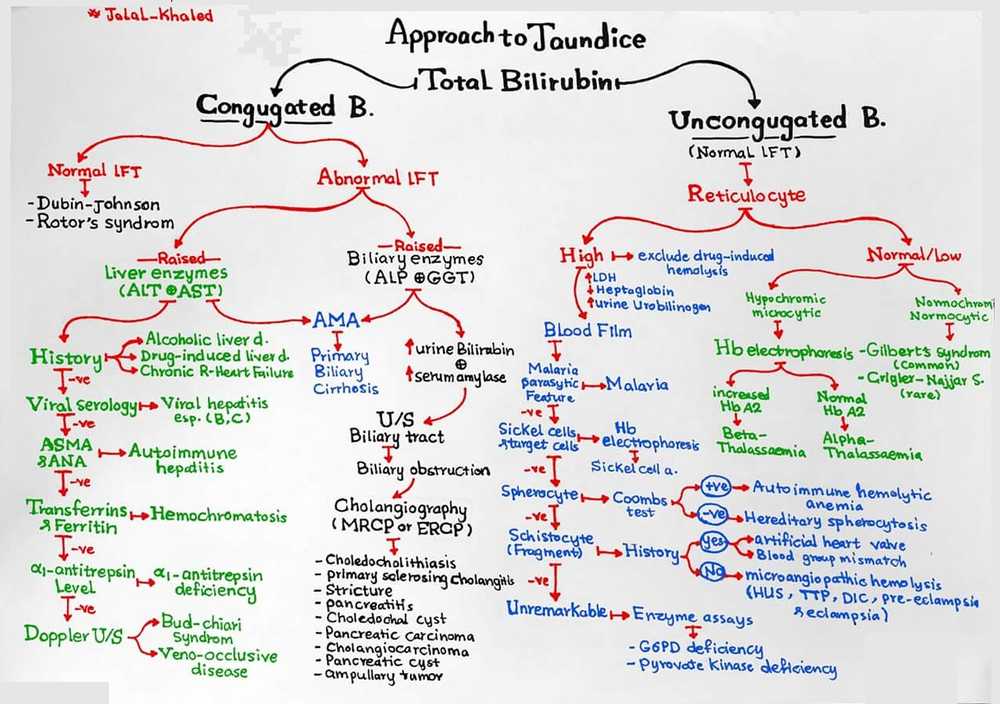 * Jalal-Khaled
Approach to Jaundice
Total Bilirubin
Congugated B.
Normal LFT
- Dubin-Johnson
- Rotor's syndrom
Abnormal LFT
Raised
Liver enzymes
(ALT ⊕ AST)
Raised
Biliary enzymes
(ALP ⊕ GGT)
History
Alcoholic liver d.
Drug-induced liver d.
Chronic R-Heart Failure
-ve
Viral serology
Viral hepatitis
esp. (B,C)
-ve
ASMA
& ANA
Autoimmune
hepditis
-ve
Transferrins
& Ferritin
Hemochromatosis
-ve
α1-antitrepsin
Level
α1-antitrepsin
deficiency
-ve
Doppler U/S
Bud-chiari
Syndrom
Veno-occlusive
disease
AMA
Primary
Biliary
Cirrhosis
↑urine Bilirabin
⊕
↑serum amylase
U/S
Biliary tract
Biliary obstruction
Cholangiography
(MRCP or ERCP)
- Choledocholithiasis
- primary sclerosing cholangitis
- Stricture
- pancreatitis
- Choledochal cyst
- Pancreatic carcinoma
- Cholangiocarcinoma
- Pancreatic cyst
- ampullary tumor
Uncongugated B.
(Normal LFT)
Reticulocyte
High
exclude drug-induced
hemolysis
↑LDH
↓Heptaglobin
↑urine Urobilinogen
Blood Film
Malaria
parasytic
Feature
Malaria
-ve
Sickel cells
& target cells
Hb
electrophoresis
Sickel cell a.
-ve
Spherocyte
Coombs
test
+ve
Autoimmune hemolytic
anemia
-ve
Hereditary spherocytosis
-ve
Schistocyte
(Fragment)
History
yes
artificial heart valve
Blood group mismatch
No
microangiopathic hemolysis
(HUS, TTP, DIC, pre-eclampsia
& eclampsia)
-ve
Unremarkable
Enzyme assays
- G6PD deficiency
- Pyrovate Kinase deficiency
Normal/Low
Hypochromic
microcytic
Hb electrophoresis
increased
Hb A2
Beta-
Thalassaemia
Normal
Hb A2
Alpha-
Thalassaemia
Normochromi
Normocytic
- Gilbert's syndrom
(common)
- Crigler-Najjar S.
(rare)